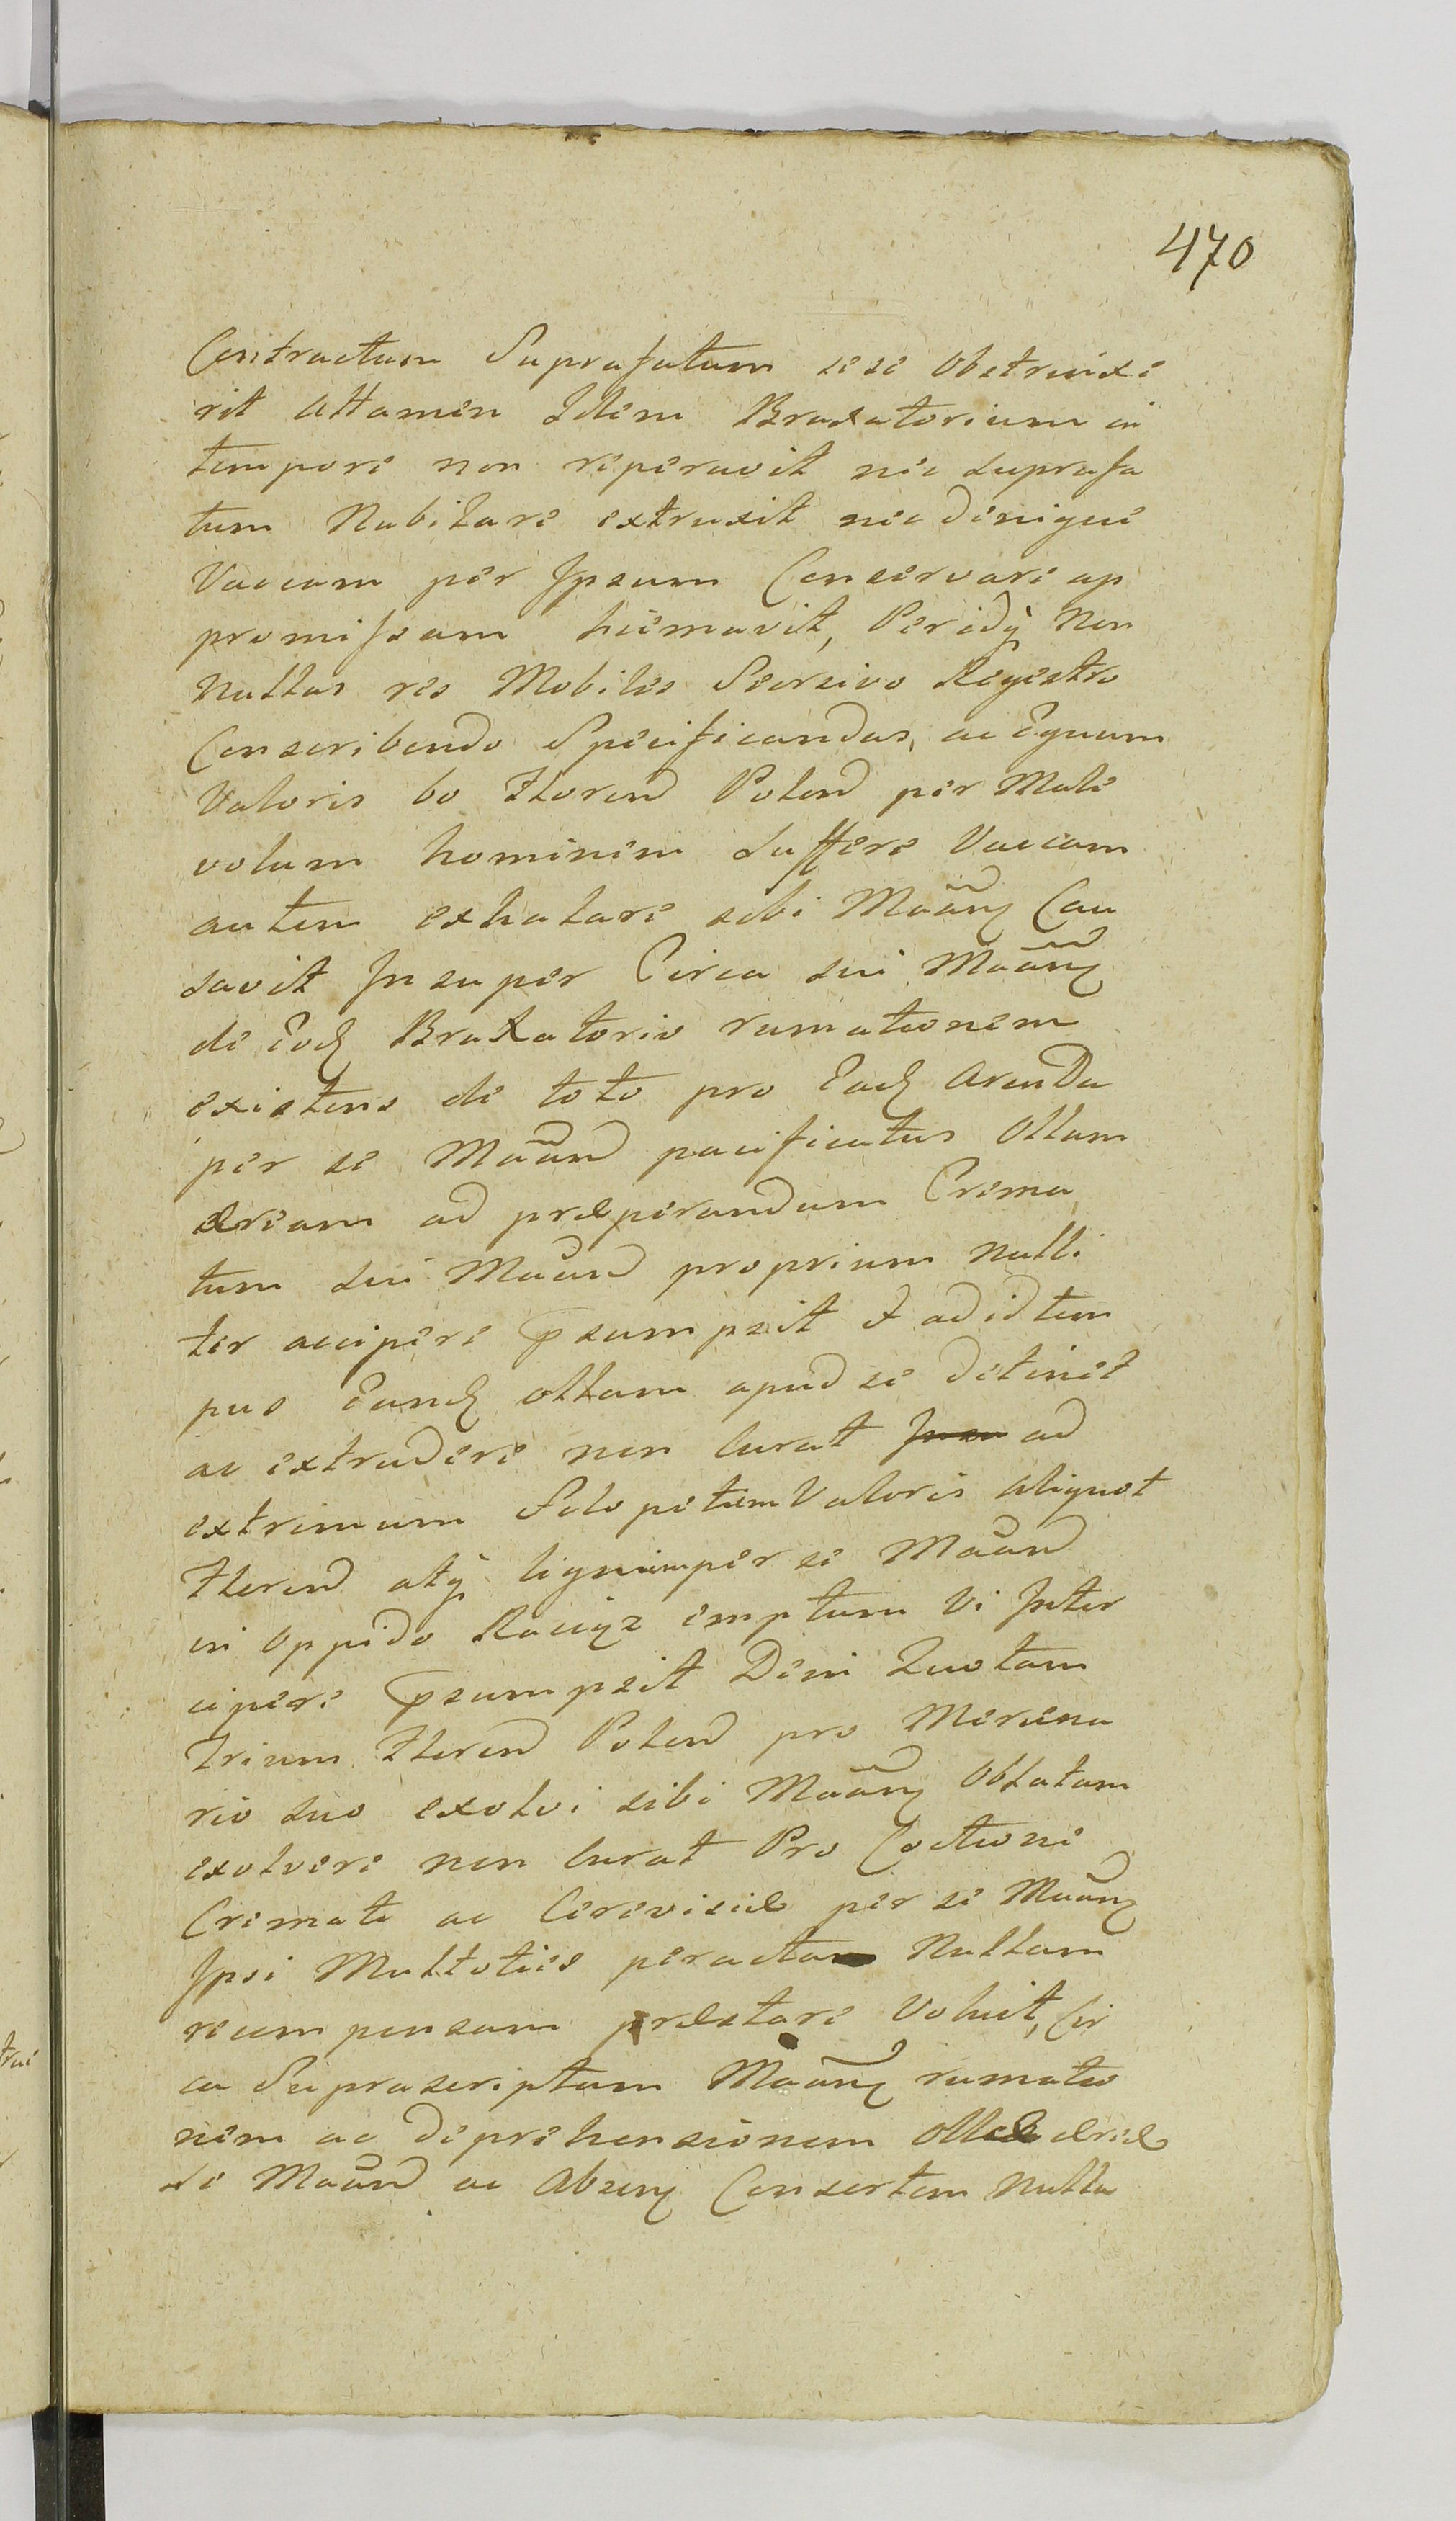 470
Contractum Suprafatum sese obstrinxe
rit Attamen Idem Braxatorium in
tempore non reperavit nec suprafa
tum Nubilare extruxit nec denique
Vaccam per Ipsum Conservare ap
promissam hiemavit, Per idq̀ Non
nullas res Mobiles Seorsivo Regestro
Conscribendo Specificandas, ac Equum
Valoris 60 Floren Polon per Male
volum hominem sufferre Vaccam
autem exhalare sibi Maan Cau
savit Insuper Circa sui Maan
de Eod Braxatorio rumationem
existens de toto pro Ead Arenda
per se Maan pacificatus Ollam
æream ad præperandum Crema
tum sui Maan proprium nulli
ter accipere psumpsit & ad id tem
pus Eand ollam apud se detinet
ac extradere non Curat ad
extremum Sclopetum Valoris aliquot
Floren atq̀ lignum per se Maan
in Oppido Raciąz emptum Vi Inter
cipere psumpsit Dein Quotam
trium Floren Polon pro Mercena
rio suo exolvi sibi Maan Oblatam
exolvere non Curat Pro Coctione
Cremati ac Cerevisiæ per se Maan
Ipsi Multoties peracta Nullam
recompensam præstare Voluit, Cir
ca Suprascriptam Maan rumatio
nem ac deprehensionem ollæ æreæ
se Maan ac Absen Consortem Nulla